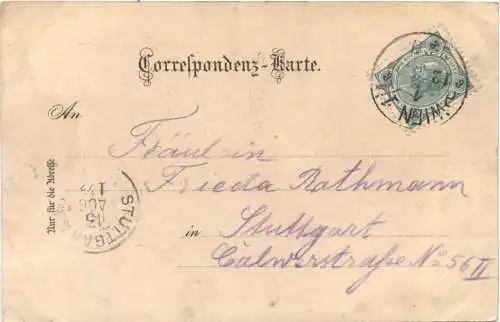 Correspondenz-Karte.
An
Fräulein
Frieda Rathmann
in Stuttgart
Calwerstraße No 56 II
Nur für die Adresse
STUTTGART
13
AUG
WIEN